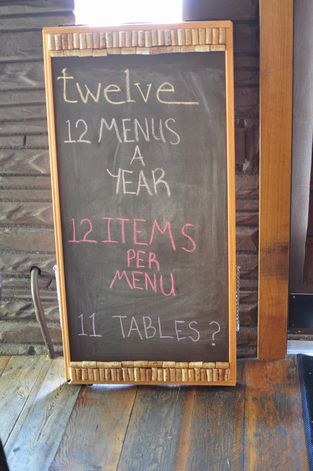 twelve
12 MENUS
A
YEAR
12 ITEMS
PER
MENU
11 TABLES?